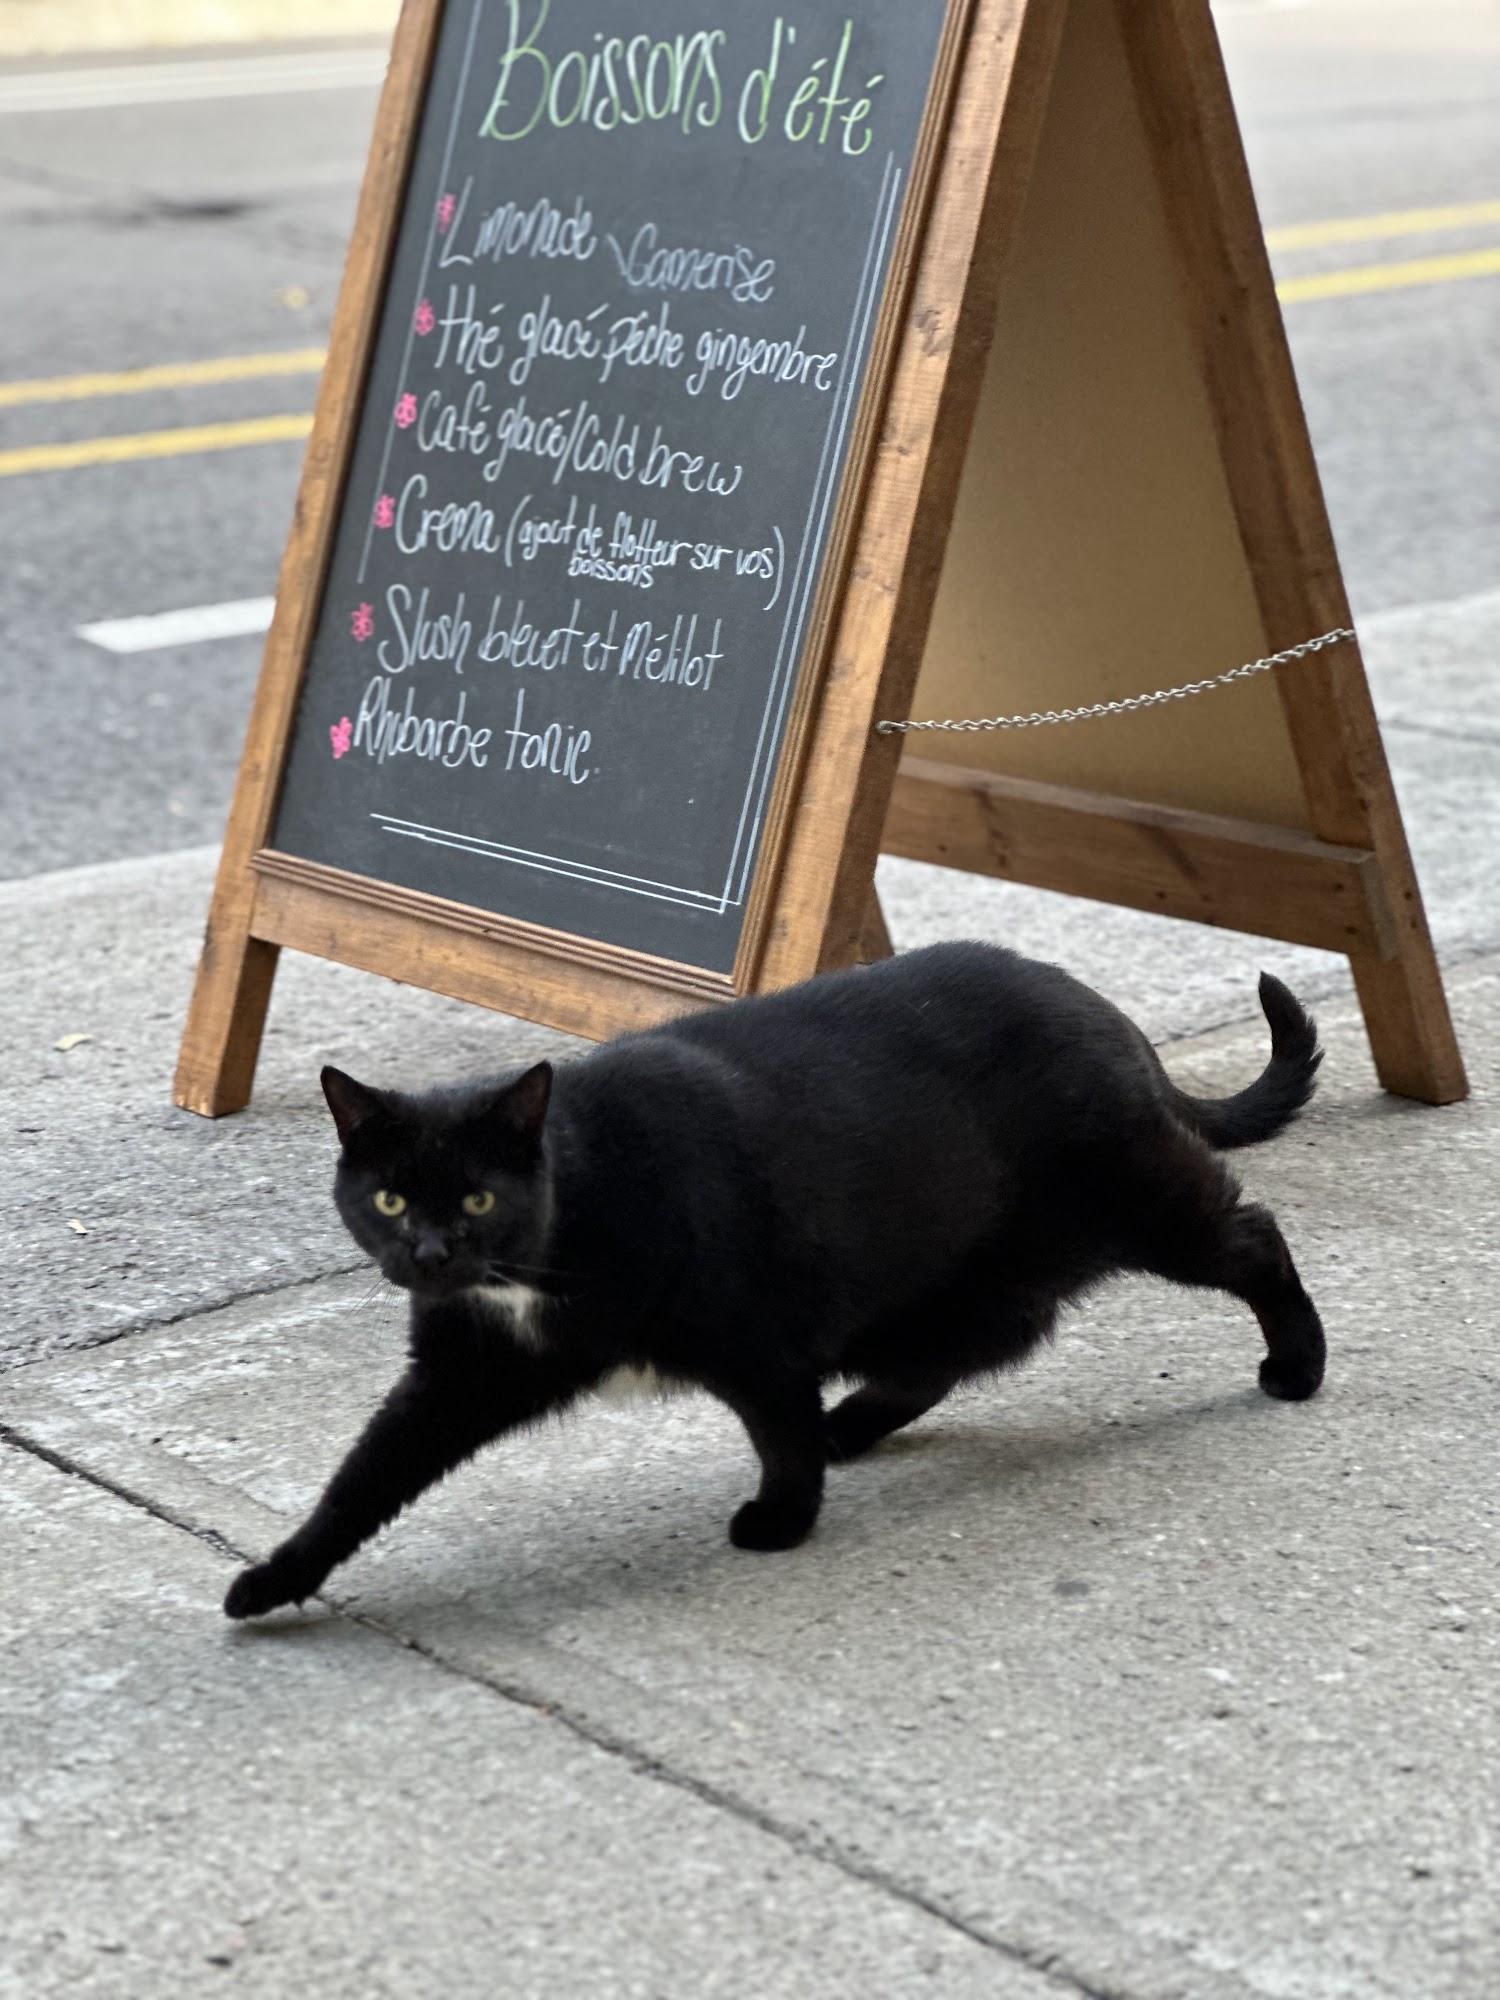 Boissons d'été
Limonade \Camerise
thé glacé, pêche gingembre
Café glacé/Cold brew
Crema (ajout de flotteur sur vos)
boissons
Slush bleuet et Mélilot
Rhubarbe tonic.